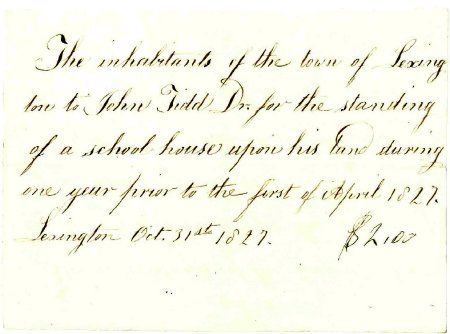 The inhabitants of the town of Lexing
ton to John Tidd Dr. for the standing
of a school house upon his land during
one year prior to the first of April 1827.
Lexington Oct. 31st 1827. $2,00